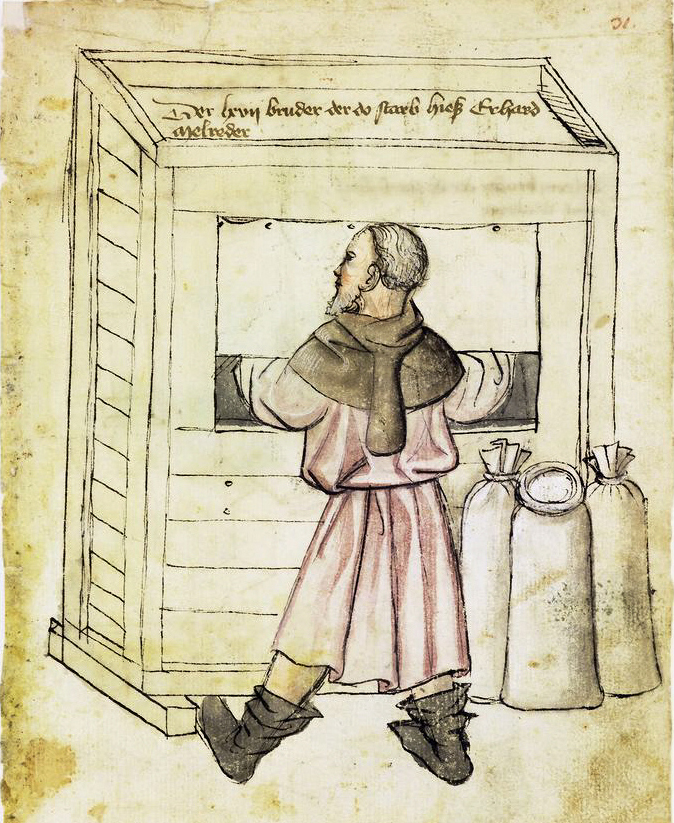 31.
Der lxvii bruder der do starb hieß Erhard
Melreder